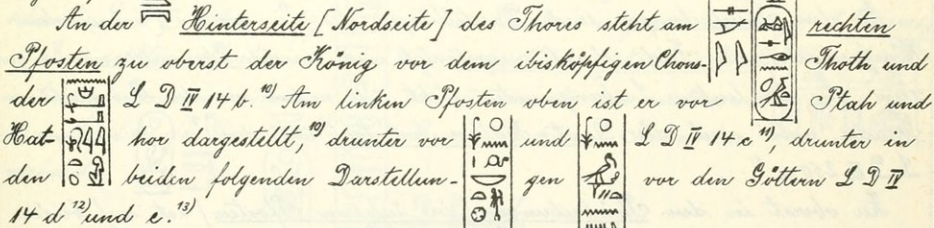 An der Hinterseite [Nordseite] des Thores steht am rechten
Pfosten zu oberst der König vor dem ibisköpfigen Chons- Thoth und
der L D IV 14 b. 10) Am linken Pfosten oben ist er vor Ptah und
Hat- hor dargestellt, 10) drunter vor und L D IV 14 c 11), drunter in
den beiden folgenden Darstellun- gen vor den Göttern L D IV
14 d 12) und e. 13)